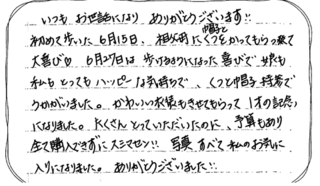 いつも お世話になり ありがとうございます!!
初めて歩いた 6月15日、相必用にくつと帽子をかってもらって
大喜び♡ 6月27日は 歩けるようになった喜びで 娘も
私も とっても ハッピーな気持ちで、くつと帽子 持参で
うかがいました。かわいい衣装もきせてもらって 1才の記念
になりました。たくさん とっていただいたのに、予算もあり
全て購入できずにスミマセン!! 写真 すべて 私のお気に
入りになりました。ありがとうございました!!